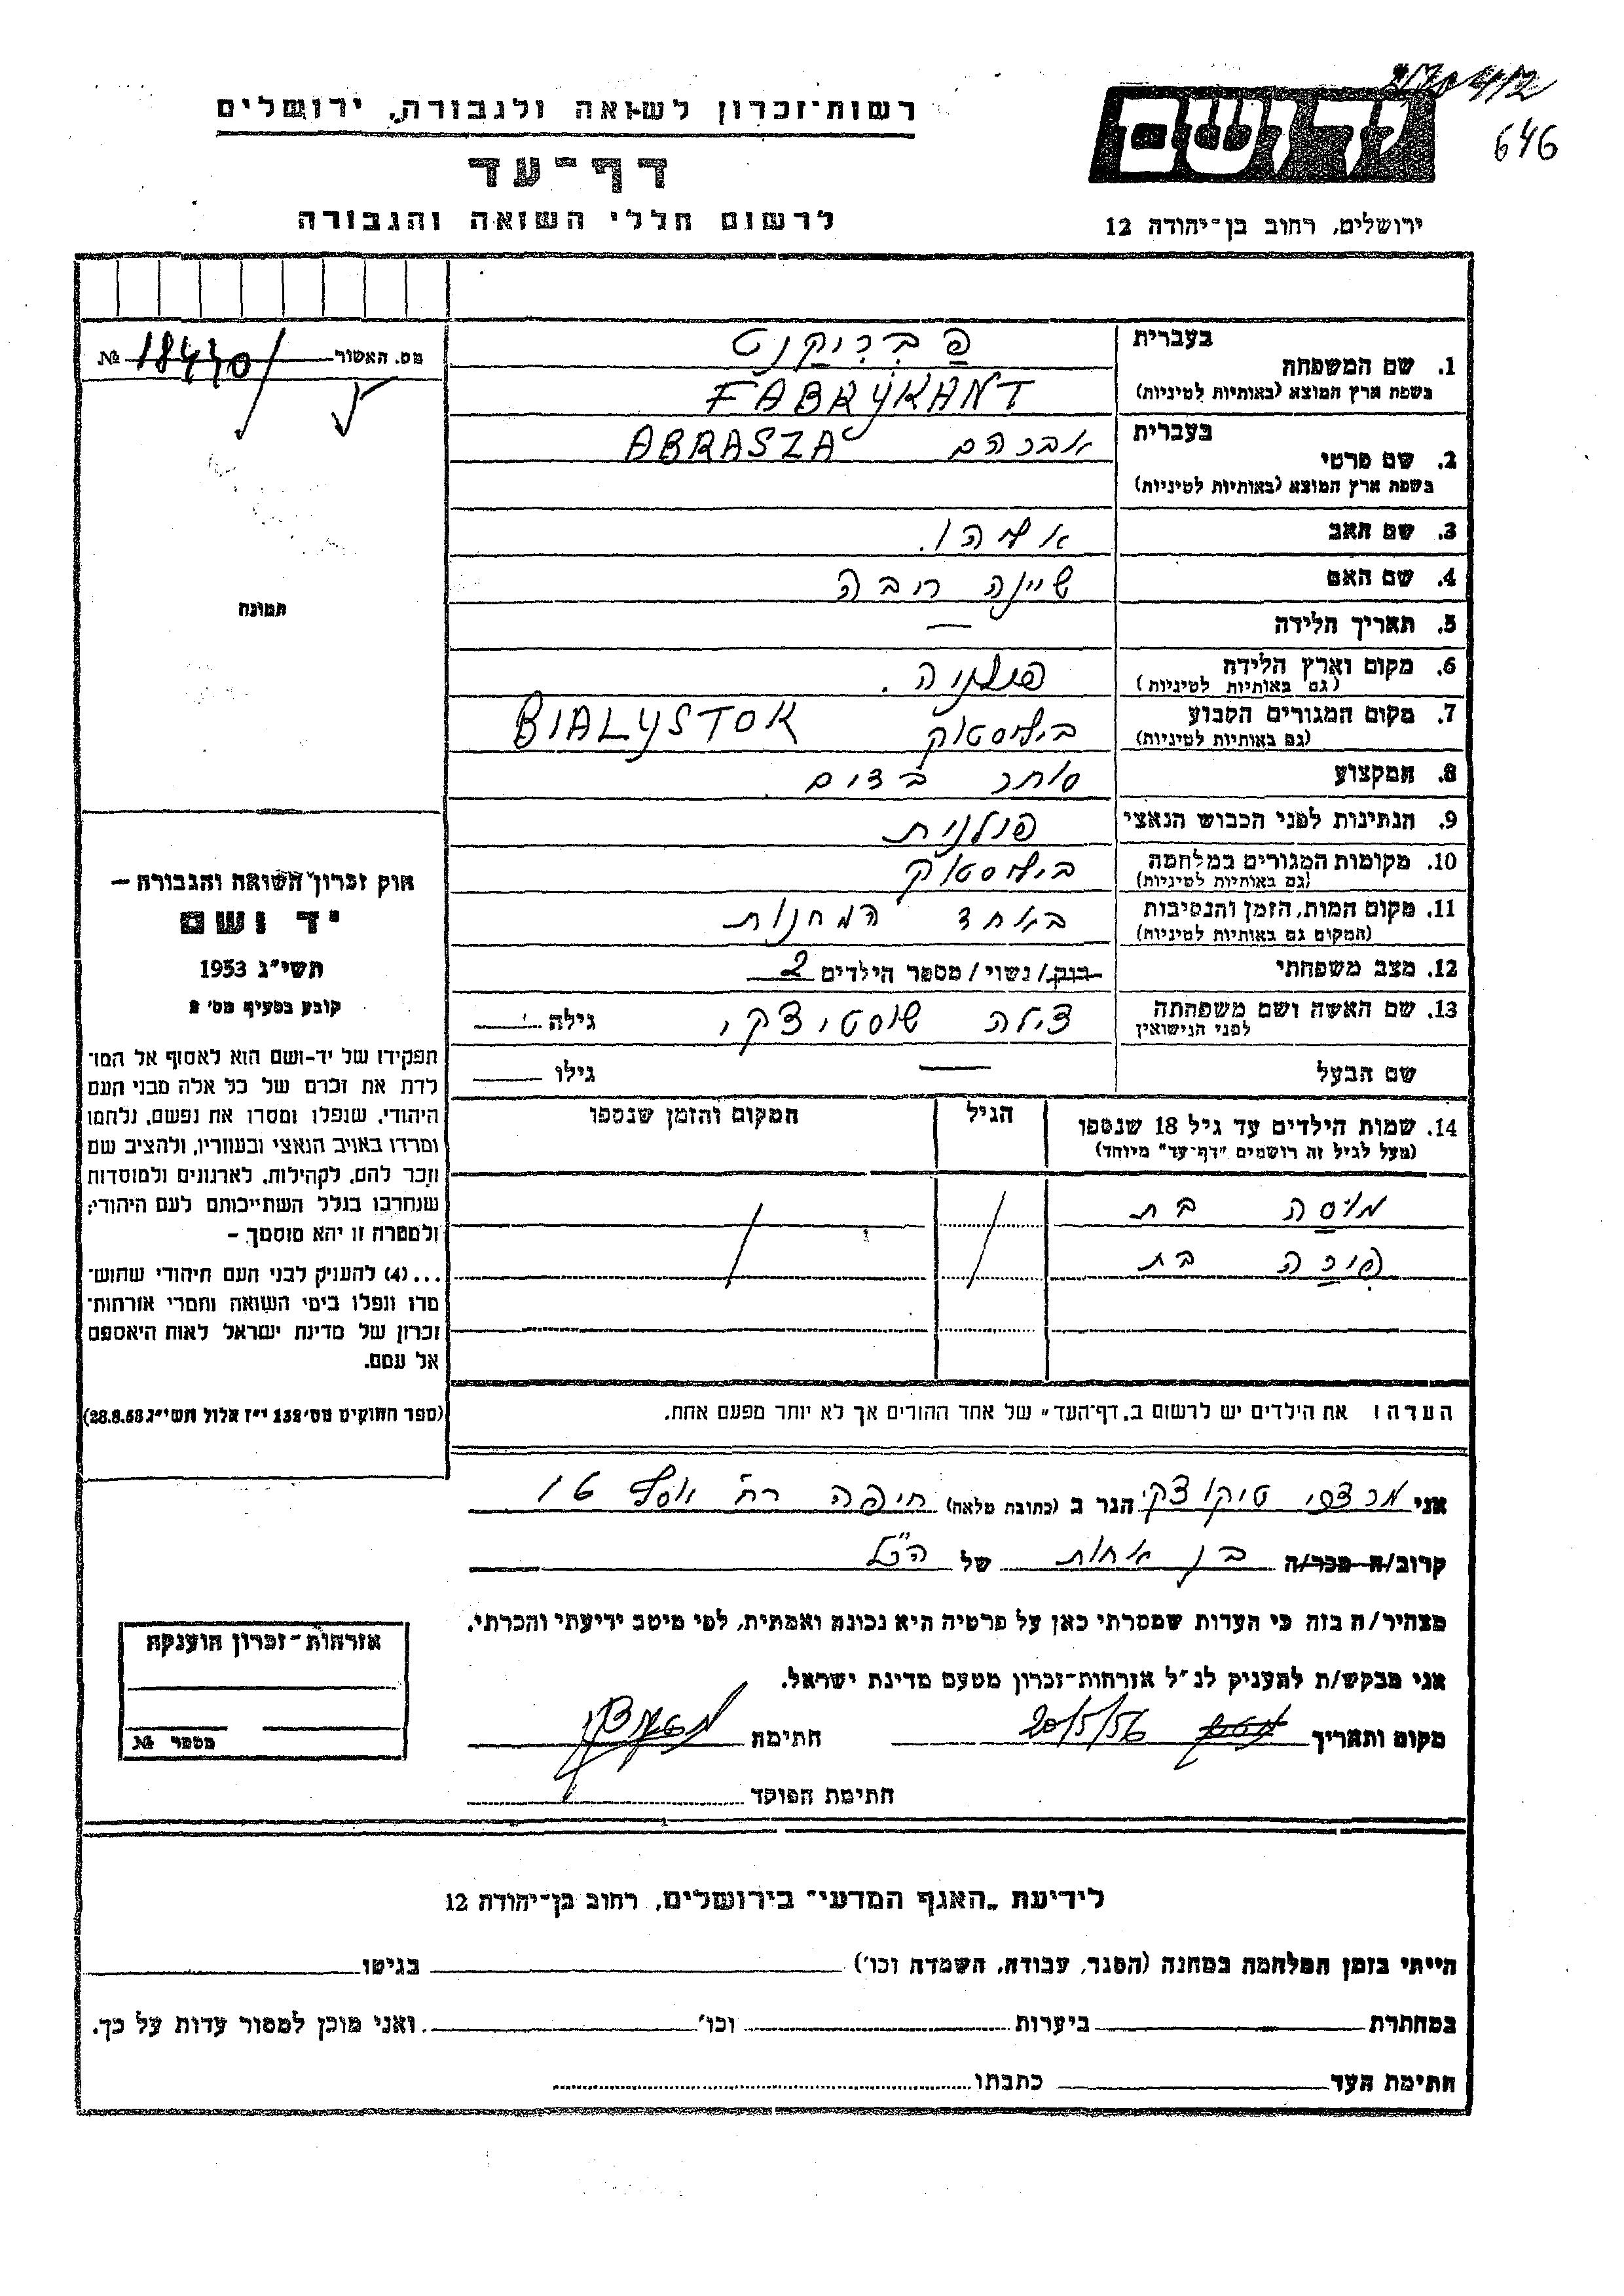 רשות־זכרון לשואה ולגבורה, ירושלים
דף־עד
לרשום חללי השואה והגבורה
ידושם
646
ירושלים, רחוב בן־יהודה 12
מס. האשור 18440 №
תמונה
בעברית
1. שם המשפחה פבריקנט
בשפת ארץ המוצא (באותיות לטיניות) FABRYKANT
בעברית
2. שם פרטי אברהם ABRASZA
בשפת ארץ המוצא (באותיות לטיניות)
3. שם האב אליהו.
4. שם האם שיינה ריבה
5. תאריך הלידה —
6. מקום וארץ הלידה פולניה.
(גם באותיות לטיניות)
7. מקום המגורים הקבוע ביליסטוק BIALYSTOK
(גם באותיות לטיניות)
8. המקצוע סוחר בדים
9. הנתינות לפני הכבוש הנאצי פולנית
10. מקומות המגורים במלחמה ביליסטוק
(גם באותיות לטיניות)
11. מקום המות, הזמן והנסיבות באחד המחנות
(המקום גם באותיות לטיניות)
12. מצב משפחתי רוק/נשוי/מספר הילדים 2
13. שם האשה ושם משפחתה צילה שוסטיצקי גילה
לפני הנישואין
שם הבעל — גילו
14. שמות הילדים עד גיל 18 שנספו הגיל המקום והזמן שנספו
(מעל לגיל זה רושמים "דף־עד" מיוחד)
בת
בת
הערה: את הילדים יש לרשום ב„דף־העד" של אחד ההורים אך לא יותר מפעם אחת.
חוק זכרון השואה והגבורה —
יד ושם
תשי"ג 1953
קובע בסעיף מס' 2
תפקידו של יד-ושם הוא לאסוף אל המו־
לדת את זכרם של כל אלה מבני העם
היהודי, שנפלו ומסרו את נפשם, נלחמו
ומרדו באויב הנאצי ובעוזריו, ולהציב שם
וזכר להם, לקהילות, לארגונים ולמוסדות
שנחרבו בגלל השתייכותם לעם היהודי;
ולמטרה זו יהא מוסמך —
...(4) להעניק לבני העם היהודי שהוש־
מדו ונפלו בימי השואה והמרי אזרחות־
זכרון של מדינת ישראל לאות היאספם
אל עמם.
(ספר החוקים מס' 132 י"ז אלול תשי"ג 28.8.53)
אני מרדכי טיקוצקי הגר ב (כתובת מלאה) חיפה רח'
קרוב/ה מכר/ה בן אחות של הנ"ל
מצהיר/ה בזה כי העדות שמסרתי כאן על פרטיה היא נכונה ואמתית, לפי מיטב ידיעתי והכרתי.
אני מבקש/ת להעניק לנ"ל אזרחות־זכרון מטעם מדינת ישראל.
מקום ותאריך 20/5/56 חתימה
חתימת הפוקד
אזרחות־זכרון הוענקה
מספר №
לידיעת „האגף המדעי" בירושלים, רחוב בן־יהודה 12
הייתי בזמן המלחמה במחנה (הסגר, עבודה, השמדה וכו') בגיטו
במחתרת ביערות וכו' ואני מוכן למסור עדות על כך.
חתימת העד כתבתו